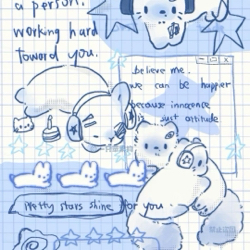 a person.
working hard
toward you.
believe me.
we can be happier
because innocence
is just attitude
Pretty stars shine for you